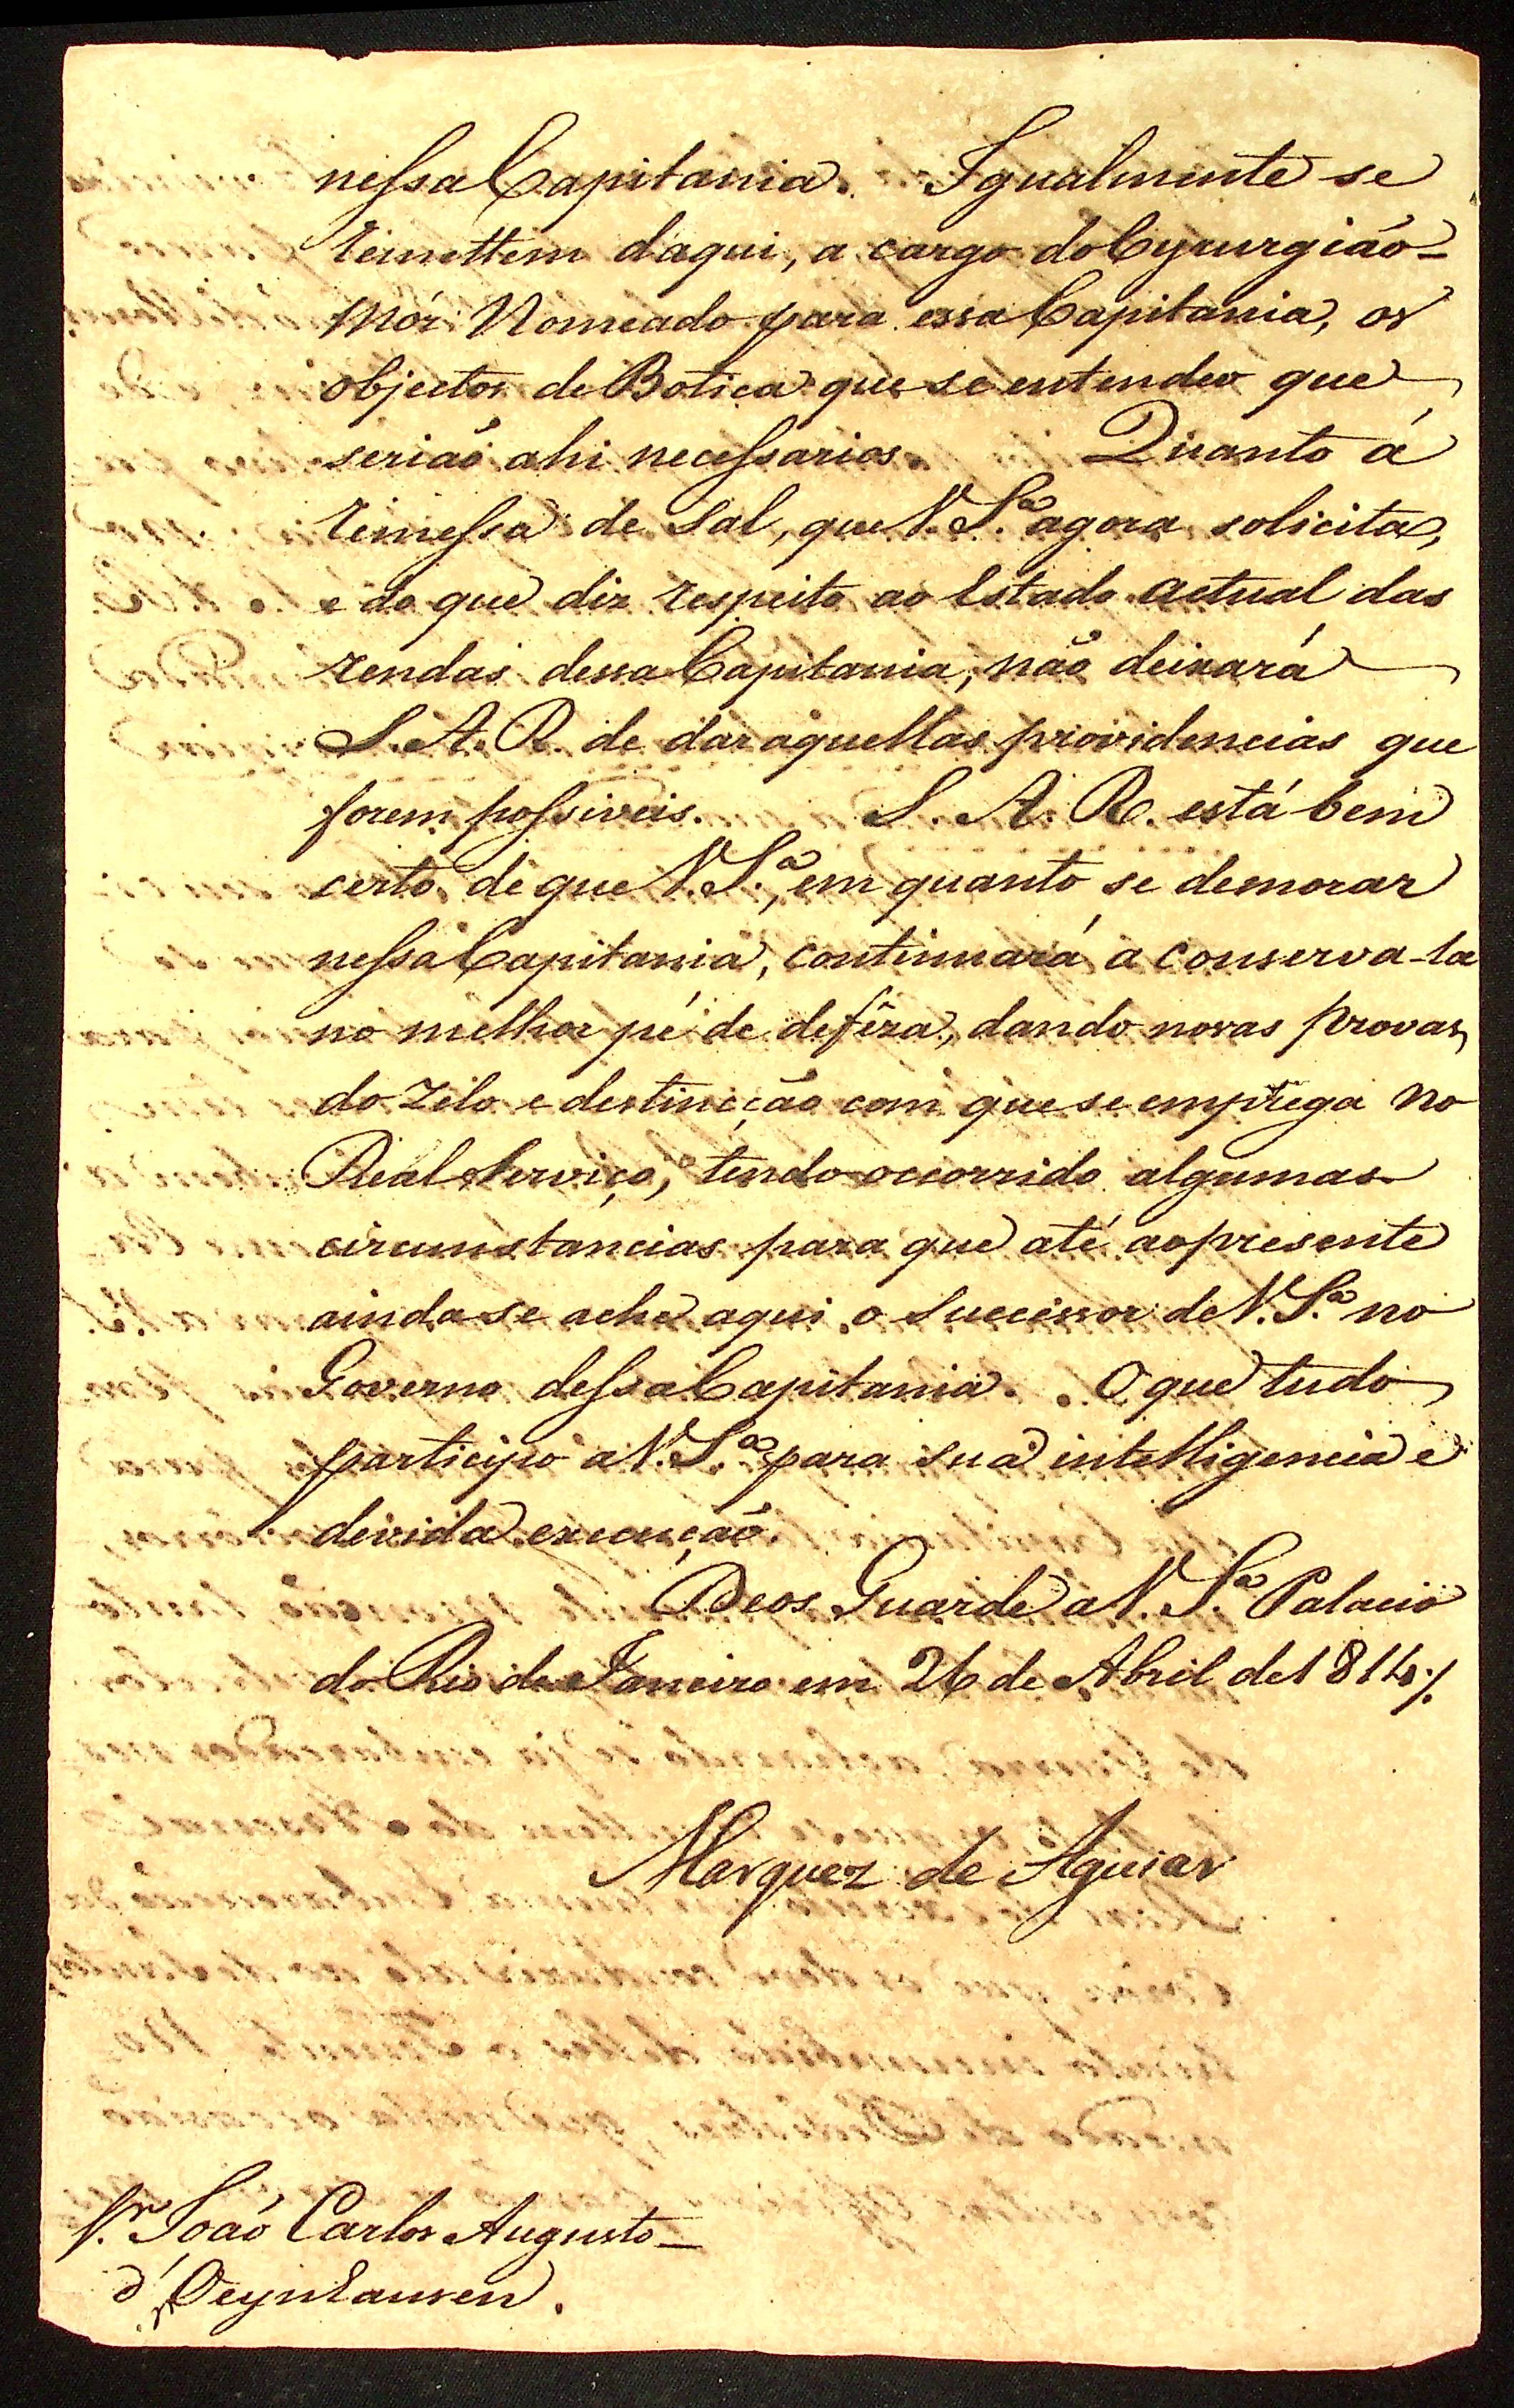 nessa Capitania. Igualmente se
remettem daqui, a cargo do Cyrurgião-
Mór Nomeado para essa Capitania, os
objectos de Botica que se entendeo que
serião ahi necessarios. Quanto á
remessa de Sal, que V. S.ª agora solicita,
e do que diz respeito ao Estado actual das
rendas dessa Capitania, não deixará
S. A. R. de dar aquellas providencias que
forem possiveis. S. A. R. está bem
certo de que V. S.ª, em quanto se demorar
nessa Capitania, continuará a conserva-la
no melhor pé de defêza, dando novas provas
do zelo e destincção com que se emprega no
Real Serviço, tendo occorrido algumas
circumstancias para que até ao presente
ainda se ache aqui o Successor de V. S.ª no
Governo dessa Capitania. O que tudo
participo a V. S.ª para sua intelligencia e
devida execução.
Deos Guarde a V. S.ª Palacio
do Rio de Janeiro em 26 de Abril de 1814./.
Marquez de Aguiar
S.r João Carlos Augusto
d'Oeynhausen.